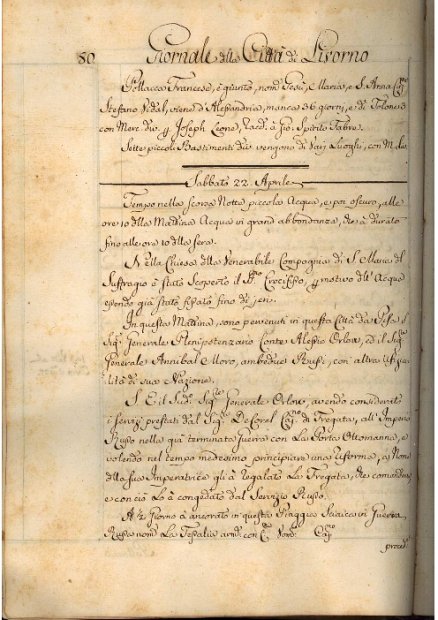 80 Giornale della Città di Livorno
Pollacca Francese, è giunto, nom.ta Gesù, e Maria, e S. Anna Cap.no
Stefano Vidal, viene d'Alessandria, manca 36 giorni, e di Tolone 3
con Merc. div. p. Joseph Leone, racd. à Gio. Spirito Fabre.
Sette piccoli Bastimenti che vengono da varj Luoghi, con
Sabbato 22. Aprile
Tempo nella scorsa Notte piccola Acqua, e poi oscuro, alle
ore 10 della Mattina Acqua in grand'abbondanza, che à durato
fino alle ore 10 della sera.
Nella Chiesa della Venerabile Compagnia di S. Maria del
Suffragio è stato scoperto il Crocifisso, p. motivo dell'Acque
essendo già stato fissato fino di jeri.
In questa Mattina, sono pervenuti in questa Città da Pisa il
Sig.re Generale Plenipotenziario Conte Alessio Orlow, ed il Sig.re
Generale Annibal Moro, ambedue Russi, con altra Ufizia-
lità di sua Nazione.
S. E. il Sud.o Sig.re Generale Orlow, avendo considerato
i servizj prestati dal Sig.re De Coral Cap.no di Fregata, all'Impero
Russo nella qui terminata Guerra con la Porta Ottomanna, e
volendo nel tempo medesimo principiare una riforma, à Nome
della sua Imperatrice gli à regalato La Fregata, che comandava
e con ciò Lo à congedato dal Servizio Russo.
A ½ Giorno à ancorato in questa Piaggia Sciaica in Guerra,
Russa nom.ta La Tessalia arm.ta con C.ni Uom.ni Cap.no